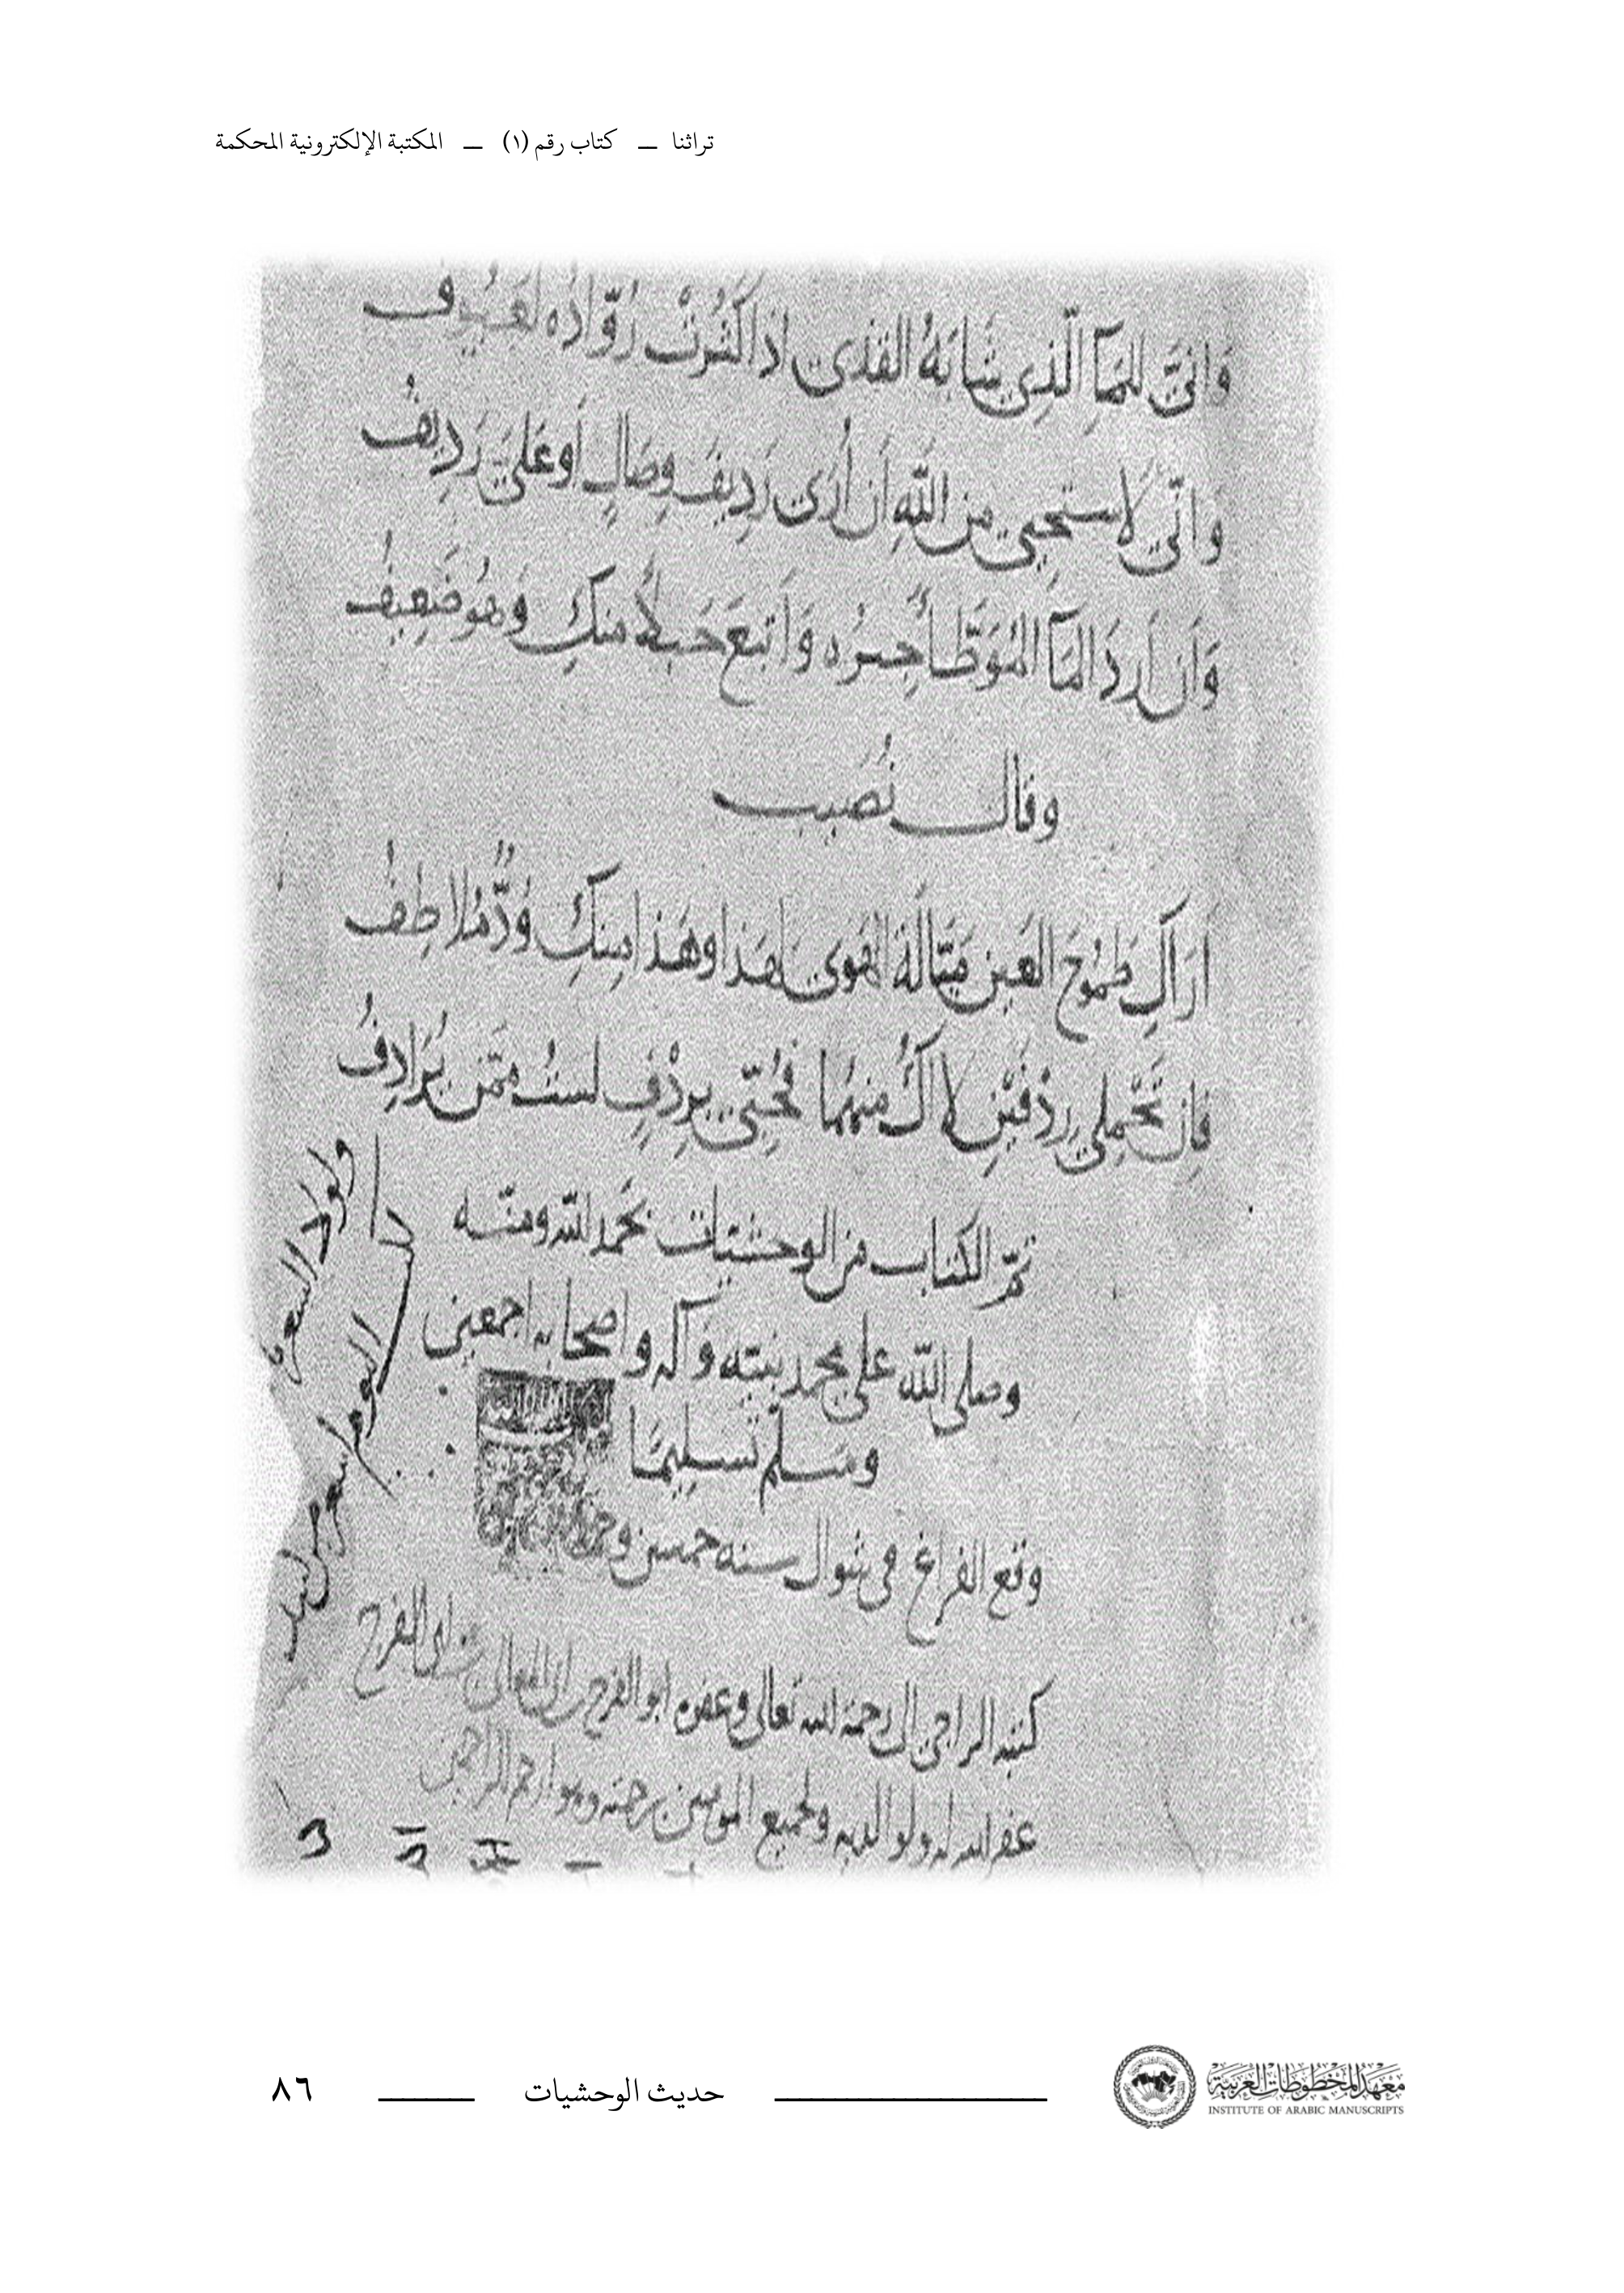 تراثنا ــ كتاب رقم (١) ــ المكتبة الإلكترونية المحكمة
وَانّيَ للمَآ الّذِي شَابَهُ القذَى اذا كَثُرتْ رُوّادُه لَعَيُوف
وَانّي لاستحيي مِن اللّهِ اَن اُرَى رَدِيفَ وِصَالٍ اَوعَليَّ رَدِيفُ
وَاَن اَرِدَ المَآ المُوَطَّأَ وَاَتبعَ مِنكِ وَهُو ضَعِيفُ
وقال نُصَيب
اَرَاكِ طَمُوحَ العَينِ مَيّالَةَ الهَوى لهَذا وهَذا مِنكِ وُدٌّ مُلاطِفُ
فاِن تَحْمِلي رِدْفَيْنِ لا اَكُ مِنهُمَا فحُبّي بِرِدْفٍ لستُ مِمّن يُرَادِفُ
تمّ الكتاب من الوحشيات بحَمد اللّه ومنّه
وصلى اللّه على محمد نبيّه وآله واصحابه اجمعين
وسَلم تسليمًا
وقع الفراغ في شوال سنه خمس
كتبه الراجي الى رحمة الله تعالى وعفوه ابو الفرج بن ابي الفرج
غفر الله له ولوالديه ولجميع المومنين برحمته وهو ارحم الراحمين
معهد المخطوطات العربية
INSTITUTE OF ARABIC MANUSCRIPTS
حديث الوحشيات
٨٦